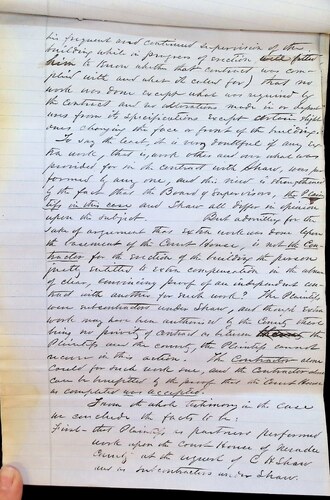 his frequent and continued supervision of the
building while in progress of erection well fitted
him to know whether that contract was com-
plied with and what it called for) that no
work was done except what was required by
the contract and no alterations made in or depart
ures from its specifications except certain slight
ones changing the face or front of the building.
To say the least, it is very doubtful if any ex
tra work, that is, work other and over what was
provided for in the contract with Shaw, was per
formed by any one, and this view is strengthened
by the fact that the Board of Supervisors, the Plain
tiffs in this case and Shaw all differ in opinion
upon the subject. But admitting for the
sake of argument that extra work was done upon
the basement of the Court House, is not the Con
tractor for the erection of the building the person
justly entitled to extra compensation in the absence
of clear, convincing proof of an independent con
tract with another for such work? The Plaintiffs
were subcontractors under Shaw, and though extra
work may have been authorized by the County there
being no privity of contract as between
Plaintiffs and the County, the Plaintiffs cannot
recover in this action. The Contractor alone
could for such work sue, and the Contractor alone
can be benefitted by the proof that the Court House
as completed was accepted.
From the whole testimony in the case
we conclude the facts to be:
First that Plaintiffs as partners performed
work upon the Court House of
County at the request of C H Shaw
and as sub contractors under Shaw.